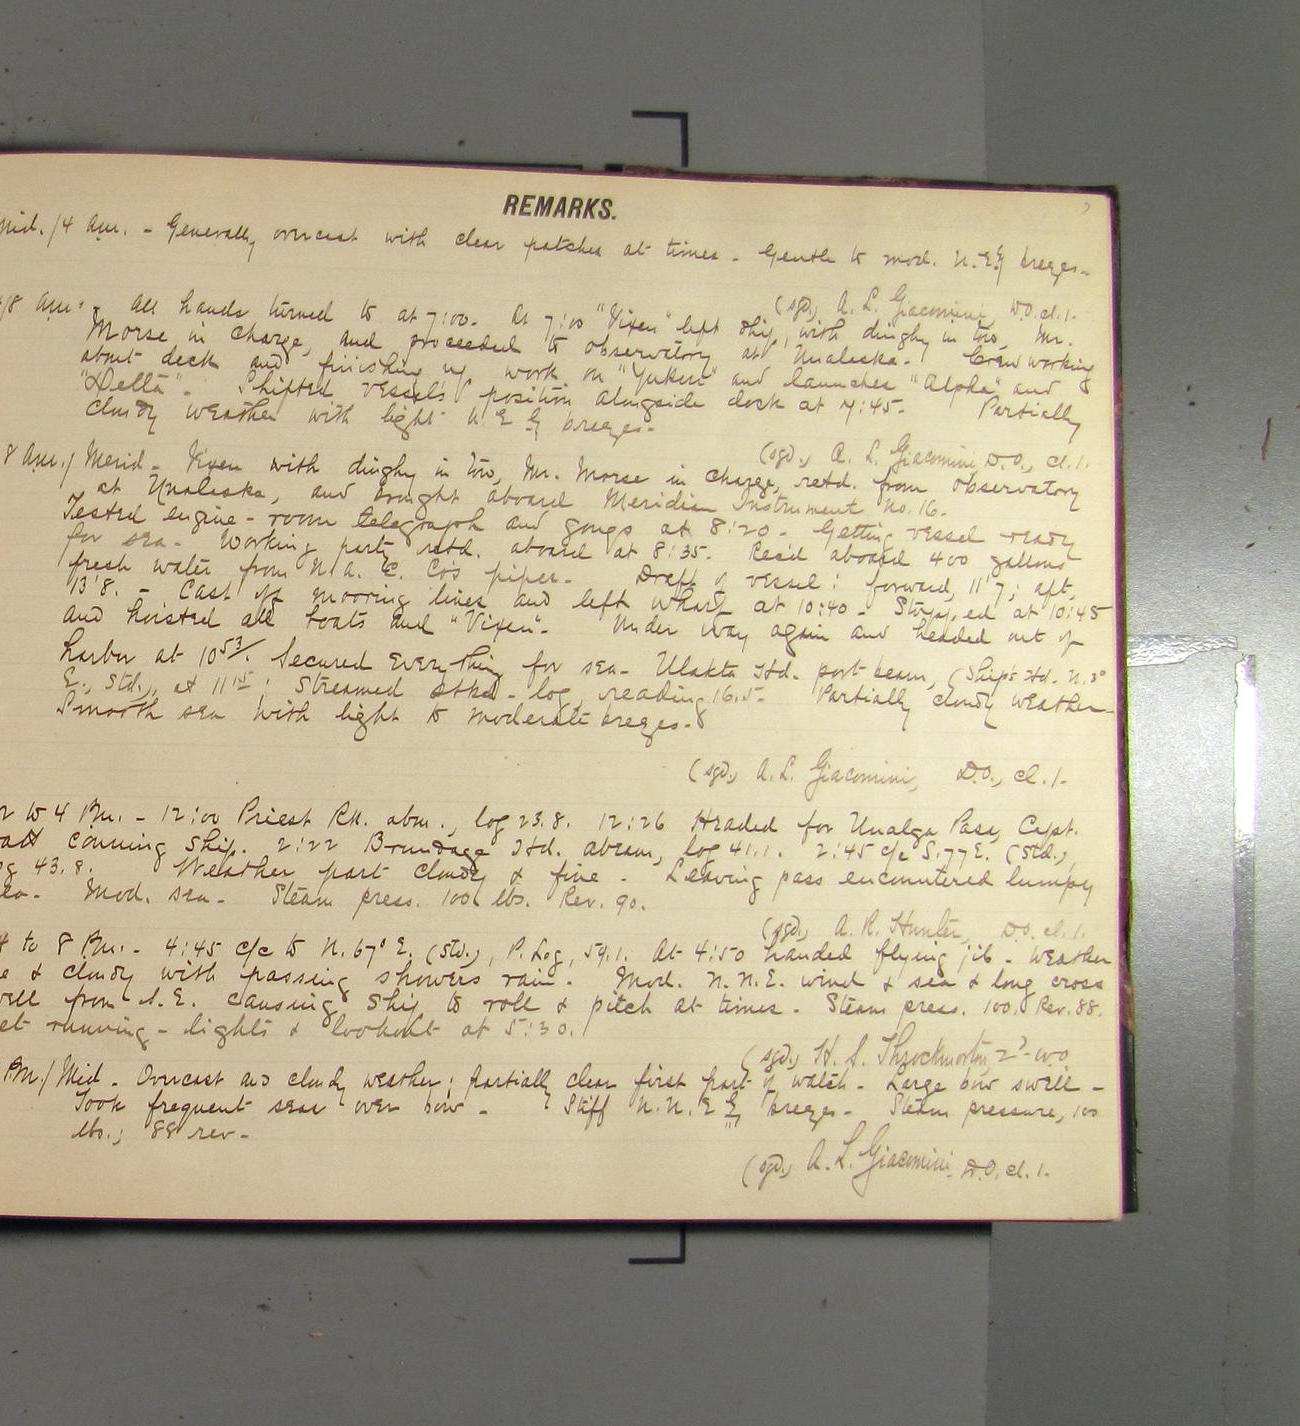 REMARKS.
Mid./4 Am. - Generally overcast with clear patches at times - Gentle to mod. N.E'y breezes-
(sgd.) A. L. Giacomini, D.O. cl. 1-
/8 Am. - All hands turned to at 7:00- At 7:00 "Vixen" left ship, with dinghy in tow, Mr.
Morse in charge, and proceeded to observatory at Unalaska- Crew working
about deck and finishing up work on "Yukon" and launches "Alpha" and
"Delta"- Shifted vessel's position alongside dock at 7:45- Partially
cloudy weather with light N E'y breezes-
(sgd.) A. L. Giacomini, D.O., cl. 1.
8 Am./Merid- Vixen with dinghy in tow, Mr. Morse in charge, retd. from observatory
at Unalaska, and brought aboard Meridian Instrument No. 16-
Tested engine-room telegraph and gongs at 8:20- Getting vessel ready
for sea- Working party retd. aboard at 8:35- Rec'd aboard 400 gallons
fresh water from N.A. C. Co's pipes- Draft of vessel: forward, 11'7; aft,
13'8.- Cast off mooring lines and left wharf at 10:40- Stopped at 10:45
and hoisted all boats and "Vixen"- Under way again and headed out of
harbor at 10 53/. Secured everything for sea- Ulakta Hd. port beam, (Ship's Hd. N. 3°
E., Std.), at 11 15; Streamed log, reading 16.5- Partially cloudy weather-
Smooth sea with light to moderate breezes-
(sgd.) A. L. Giacomini, D.O., cl. 1-
to 4 Pm. - 12:00 Priest Rk. abm., log 23.8. 12:26 Headed for Unalga Pass, Capt.
conning ship. 2:22 Brundage Hd. abeam, log 41.1. 2:45 c/c S. 77 E. (Std.),
43.8. Weather part cloudy & fine - Leaving pass encountered lumpy
Mod. sea- Steam press. 100 lbs. Rev. 90.
(sgd.) A. R. Hunter, D.O. cl. 1.
4 to 8 Pm. - 4:45 c/c to N. 67° E. (Std.), P. Log, 59.1. At 4:50 handed flying jib - Weather
& cloudy with passing showers rain- Mod. N. N. E. wind & sea & long cross
from S. E. causing ship to roll & pitch at times - Steam press. 100. Rev. 88.
running-lights & lookout at 5:30.
(sgd.) H. S. Throckmorton, 2d W.O.
Pm./Mid - Overcast and cloudy weather; partially clear first part of watch- Large bow swell-
Took frequent seas over bow- Stiff N. N. E'y breezes- Steam pressure, 100
lbs.; 88 rev-
(sgd.) A. L. Giacomini, D.O, cl. 1-